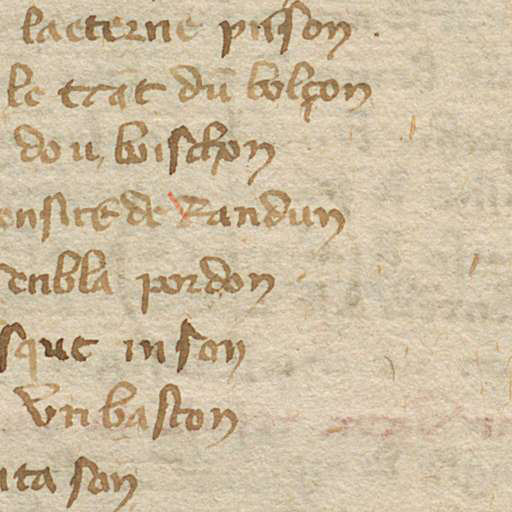 laeterne prison.
le trat du bolçon
dou boischon
onsire de Randun
enbla pordon
sque in son
Un baston
uta son